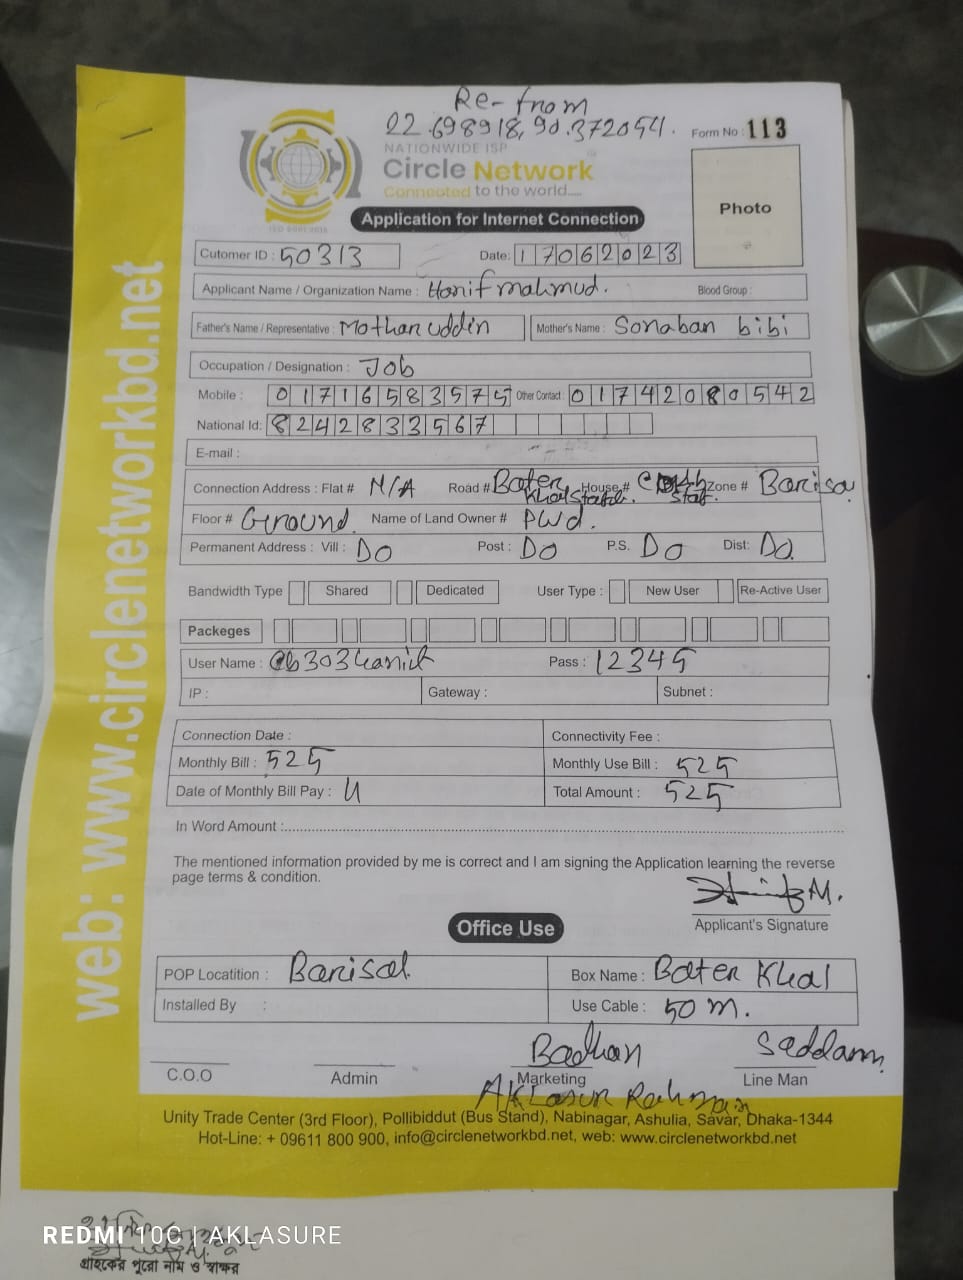 Re-from
22.698918, 90.372054.
Form No : 113
NATIONWIDE ISP
Circle Network
Connected to the world....
ISO 9001:2015
Photo
Application for Internet Connection
Cutomer ID : 50313 Date: 17062023
Applicant Name / Organization Name : Hanif mahmud. Blood Group :
Father's Name / Representative : Mothar uddin Mother's Name : Sonaban bibi
Occupation / Designation : Job
Mobile : 01716583575 Other Contact : 01742080542
National Id: 8242833567
E-mail :
Connection Address : Flat # N/A Road # Bater Khal House# Staf. Zone # Barisal
Floor # Ground Name of Land Owner # PWd.
Permanent Address : Vill : Do Post : Do P.S. Do Dist: Do
Bandwidth Type Shared Dedicated User Type : New User Re-Active User
Packeges
User Name : Pass : 12345
IP : Gateway : Subnet :
Connection Date : Connectivity Fee :
Monthly Bill : 525 Monthly Use Bill : 525
Date of Monthly Bill Pay : Total Amount : 525
In Word Amount :
The mentioned information provided by me is correct and I am signing the Application learning the reverse
page terms & condition.
Applicant's Signature
Office Use
POP Locatition : Barisal Box Name : Bater Khal
Installed By : Use Cable : 50 m.
Badhan Saddam
C.O.O Admin Marketing Line Man
AKLasur Rahman
Unity Trade Center (3rd Floor), Pollibiddut (Bus Stand), Nabinagar, Ashulia, Savar, Dhaka-1344
Hot-Line: + 09611 800 900, info@circlenetworkbd.net, web: www.circlenetworkbd.net
web: www.circlenetworkbd.net
REDMI 10C | AKLASURE
গ্রাহকের পুরো নাম ও স্বাক্ষর